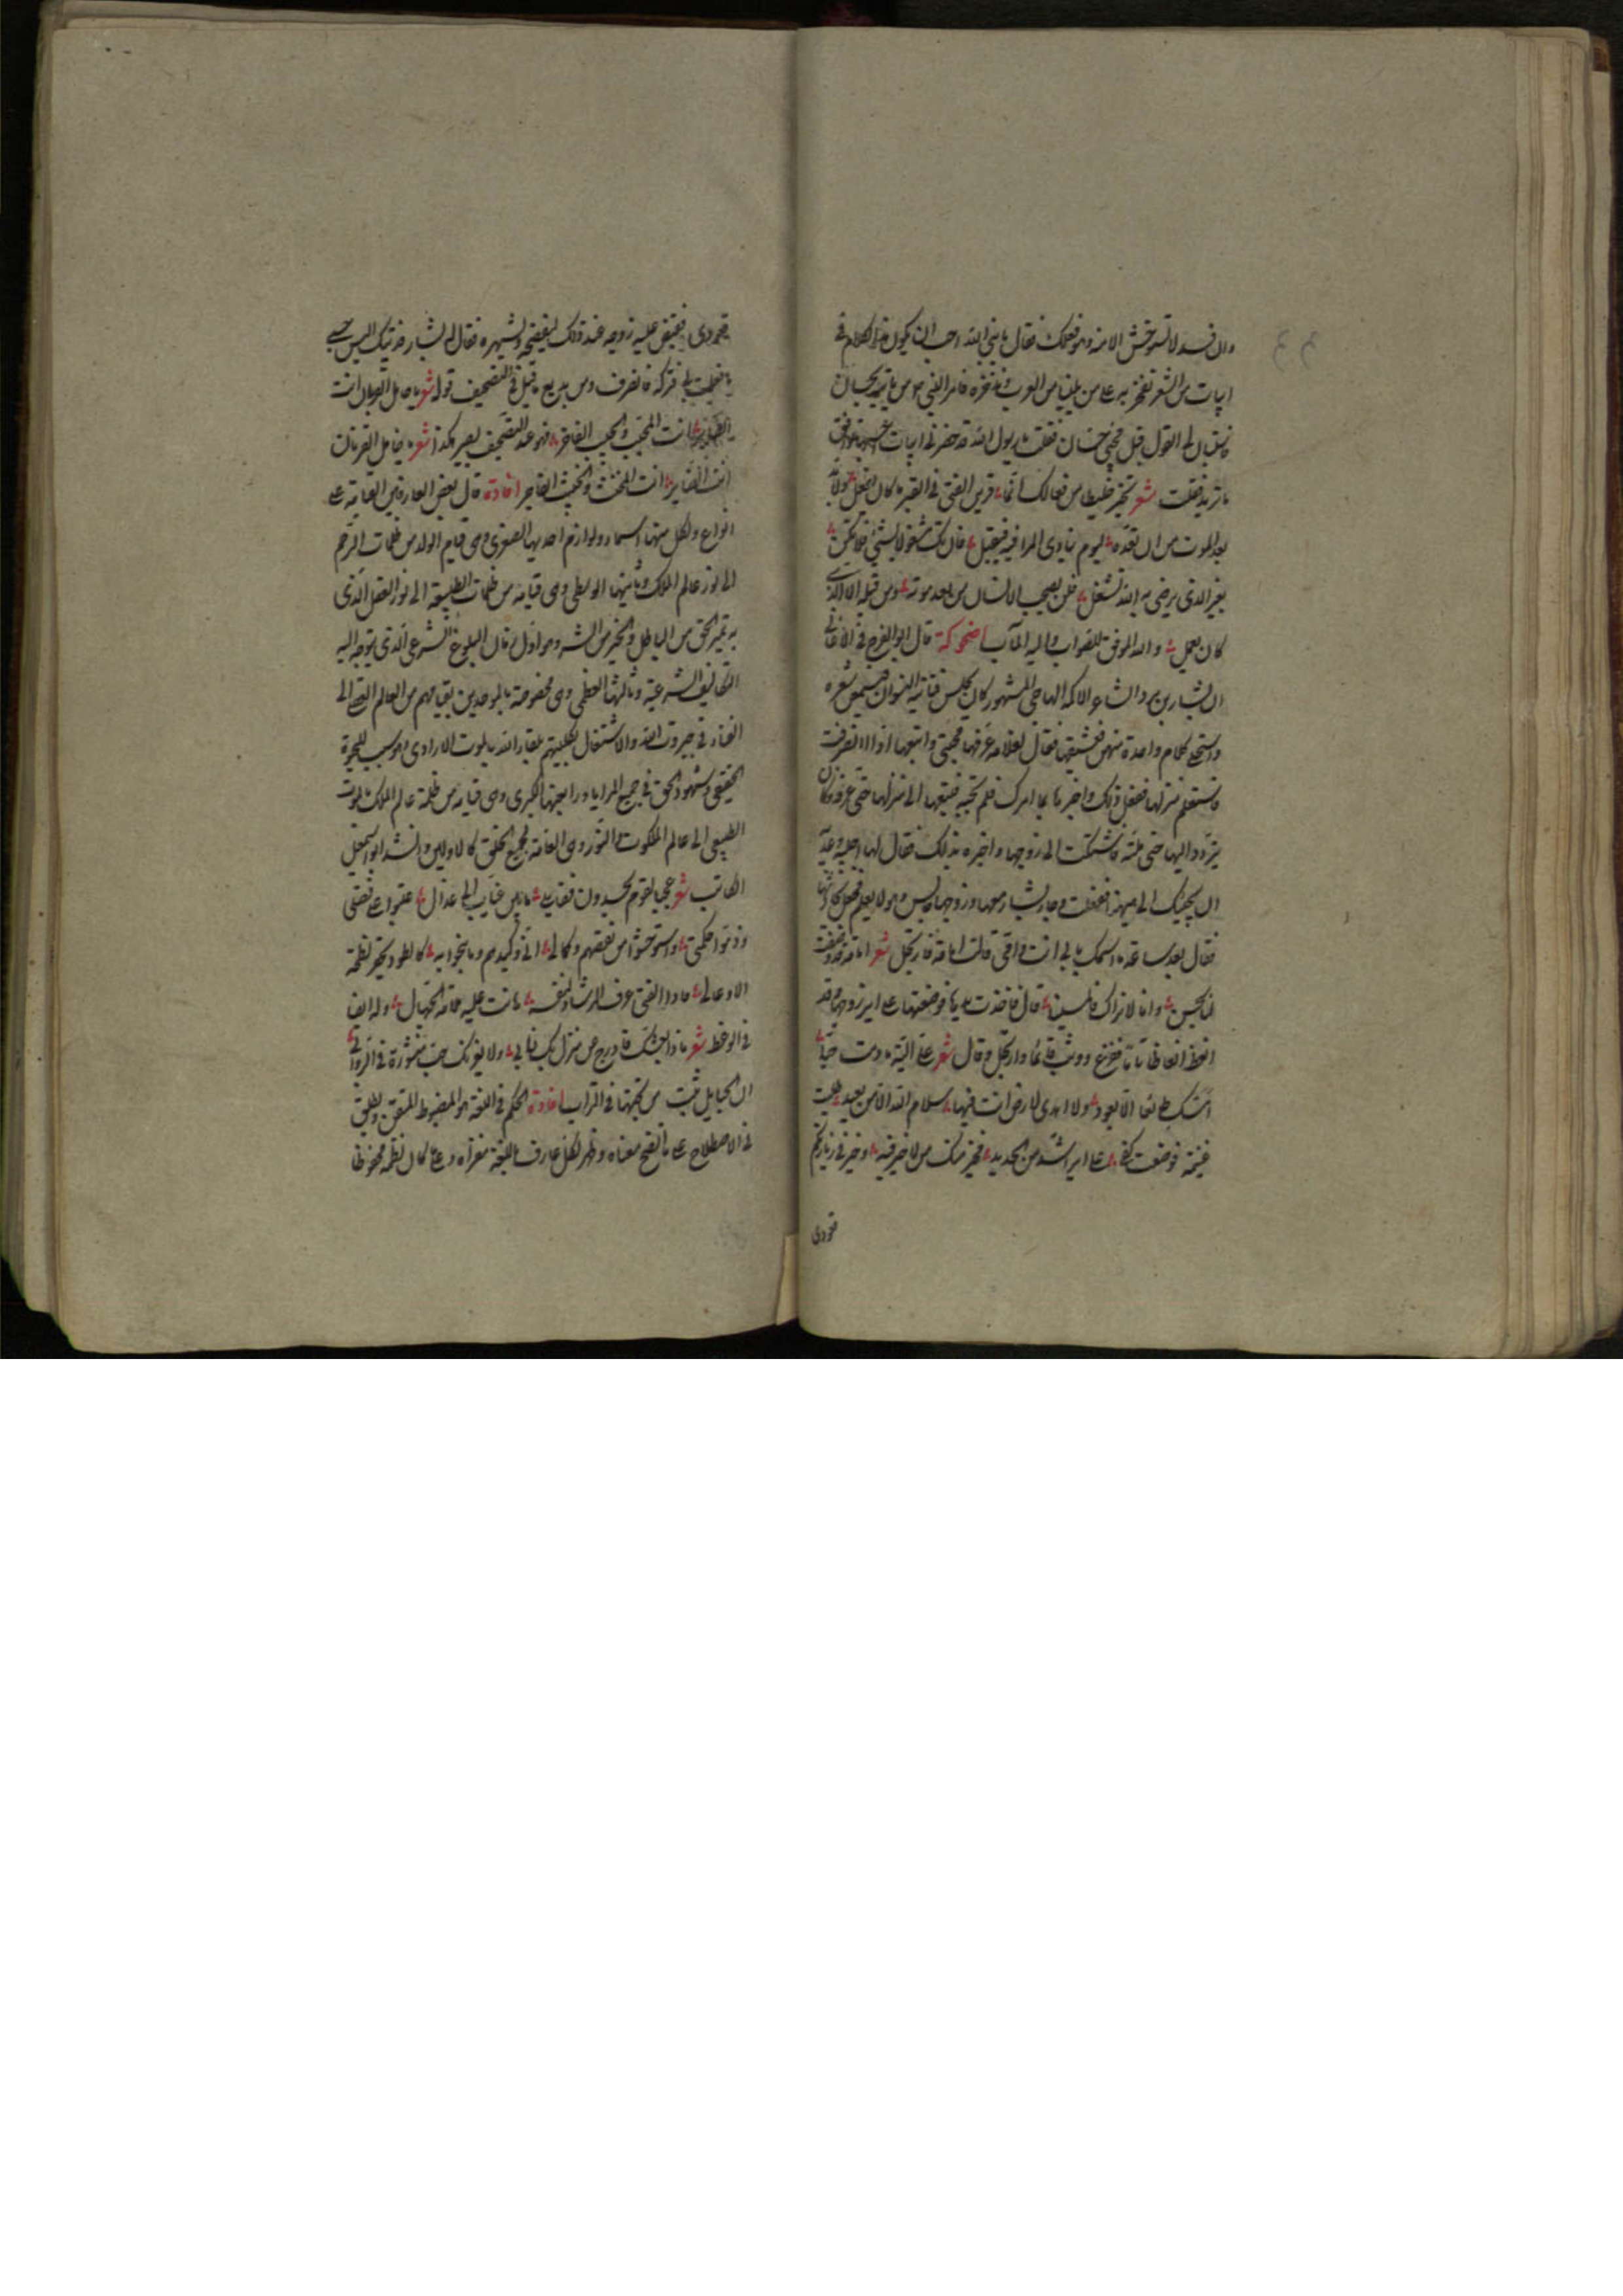 وان فسد لا تستوحش الا منه وهو فعلك فقال يا نبي الله احب ان يكون هذا الكلام في
ابيات من الشعر نفخر به على من يلينا من العرب وندخره فامر النبي ص من ياتيه بحسان
فاستبان لي القول قبل مجيء حسان فقلت يا رسول الله قد حضرني ابيات احسبها توافق
ما تريد فقلت شعر تخير خليطا من فعالك انما قرين الفتى في القبر ما كان يفعل ولا بد
بعد الموت من ان تعده ليوم ينادى المرء فيه فيقبل فان تك مشغولا بشيء فلا تكن
بغير الذي يرضى به الله تشغل فلن يصحب الانسان من بعد موته ومن قبله الا الذي
كان يعمل والله الموفق للصواب واليه المآب اضحوكة قال ابو الفرج في الاغاني
ان بشار بن برد الشاعر الاكمه الهاجي المشهور كان يجلس قباله النسوان فيسمعن شعره
واستحلى كلام واحدة منهن فعشقها فقال لغلامه عرفها محبتي واتبعها اذا انصرفت
فاستعلم منزلها ففعل ذلك واخبرها بما امرك فلم تجبه فتبعها الى منزلها حتى عرفه وكان
يتردد اليها حتى ملته فاشتكت الى زوجها واخبرته بذلك فقال لها اجيبيه وعديه
ان يجيئك الى ههنا ففعلت وجاء بشار معها وزوجها جالس وهو لا يعلم فجعل يحادثها
فقال بعد ساعة ما اسمك بابي انت وامي قالت امامة فارتجل شعر امامة قد وصفت
لنا بحسن وانا لا نراك فالمسينا قال فاخذت يده فوضعتها على اير زوجها وقد
انعظ انعاظا تاما ففزع ووثب قائما وارتجل وقال شعر على الية ما دمت حيا
امسك طائعا الا بعود ولا اهدى لارض انت فيها سلام الله الا من بعيد طلبت
غنيمة فوضعت كفي على اير اشد من الحديد فخير منك من لا خير فيه وخير من زيارتكم
قعودي
قعودي فقبض عليه زوجها عند ذلك ليفضحه ويشهره فقال له بشار فديتك اليس حسبي
ما فعلت بي فتركه فانصرف ومن بديع ما قيل في التصحيف قوله شعر يا حامل القربان انت
الطاهر انت المحب والحبيب الفاخر فهو عند التصحيف يصير هكذا شعر يا حامل القرنان
انت انت المخنث والخبيث الفاجر افادة قال بعض العارفين القيامة على
انواع ولكل منها اسماء ولوازم احديها الصغرى وهي قيام الولد من ظلمات الرحم
الى نور عالم الملك وثانيها الوسطى وهي قيامه من ظلمات الطبيعة الى نور العقل الذي
به تميز الحق من الباطل والخير من الشر وهو اول زمان البلوغ الشرعي الذي يتوجه اليه
التكاليف الشرعية وثالثها العظمى وهي مخصوصة بالموحدين بقيامهم من العالم الى
الفناء في جبروت الله والاشتغال بكليتهم بلقاء الله بالموت الارادي الموجب للحيوة
الحقيقي وشهود الحق في جميع المرايا ورابعها الكبرى وهي قيامه من ظلمة عالم الملك بالموت
الطبيعي الى عالم الملكوت والنور وهي العامة لجميع الخلق كالاولين وانشد ابو اسمعيل
الكاتب شعر عجبا لقوم يحسدون فضايلي ما بين غياب الى عذال عتبوا على فضلي
وذموا حكمتي واستوحشوا من نقصهم وكمالي اني وكيدهم وما نبحوا به كالطود يحقر نطحة
الاوعال واذا الفتى عرف الرشاد لنفسه هانت عليه ملامة الجهال وله ايضا
في الوعظ شعر
ان الحبايل من تحتها في التراب افادة الحكم في اللغة هو المضبوط المتقن ويطلق
في الاصطلاح على ما اتضح معناه وظهر لكل عارف باللغة مغزاه وعلى ما كان نظمه محفوظا